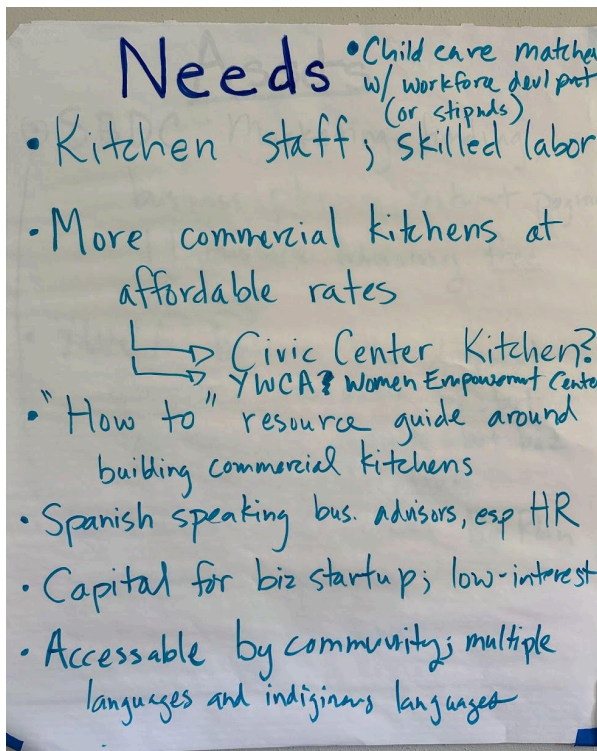 Needs
• Child care matche
w/ workforce devl pmt
(or stipnds)
• Kitchen staff; skilled labor
• More commercial kitchens at
affordable rates
Civic Center Kitchen?
YWCA? Women Empowermt Cente
• "How to" resource guide around
building commercial kitchens
• Spanish speaking bus. advisors, esp HR
• Capital for biz startup; low-interest
• Accessable by community; multiple
languages and indiginous languages